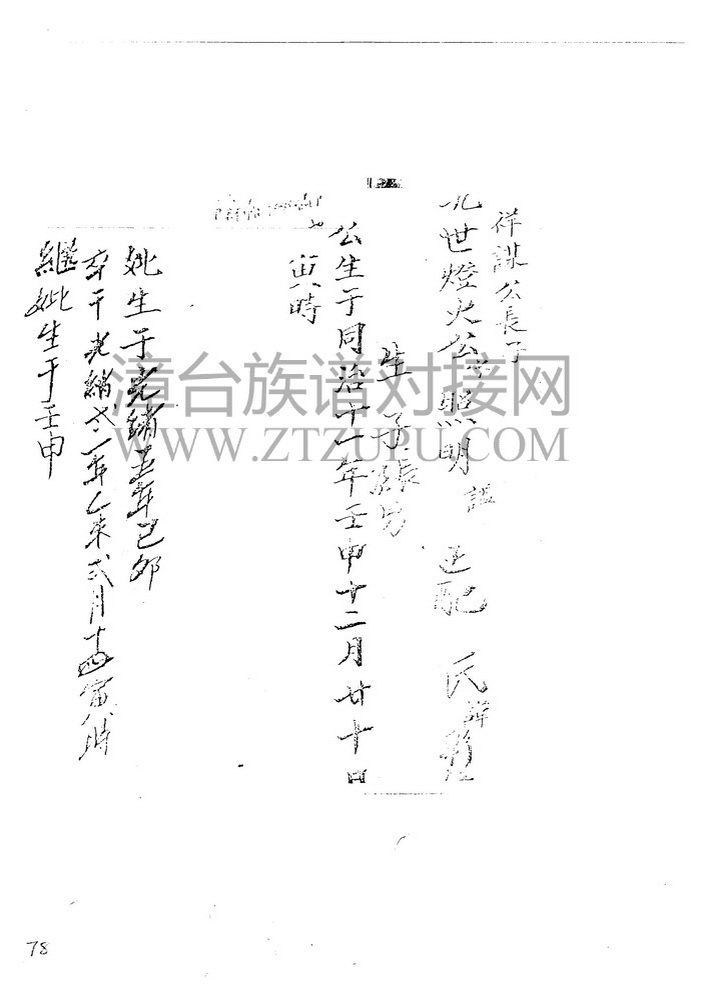 祥謀公長子
九世燈火公 照明 諡 配 氏 諱
生 子 振 
公生于同治十一年壬申十二月廿十日
寅時
妣生于光緒五年己卯
卒于光緒 一年乙未弍月十四寅八时
繼妣生于壬申
漳台族谱对接网
WWW.ZTZUPU.COM
78